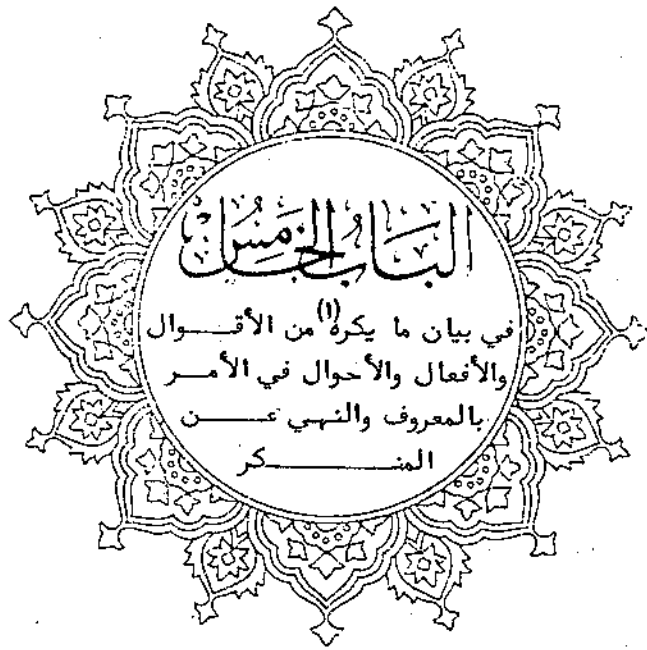 الباب الخامس
في بيان ما يكره(١) من الأقوال
والأفعال والأحوال في الأمر
بالمعروف والنهي عن
المنكر